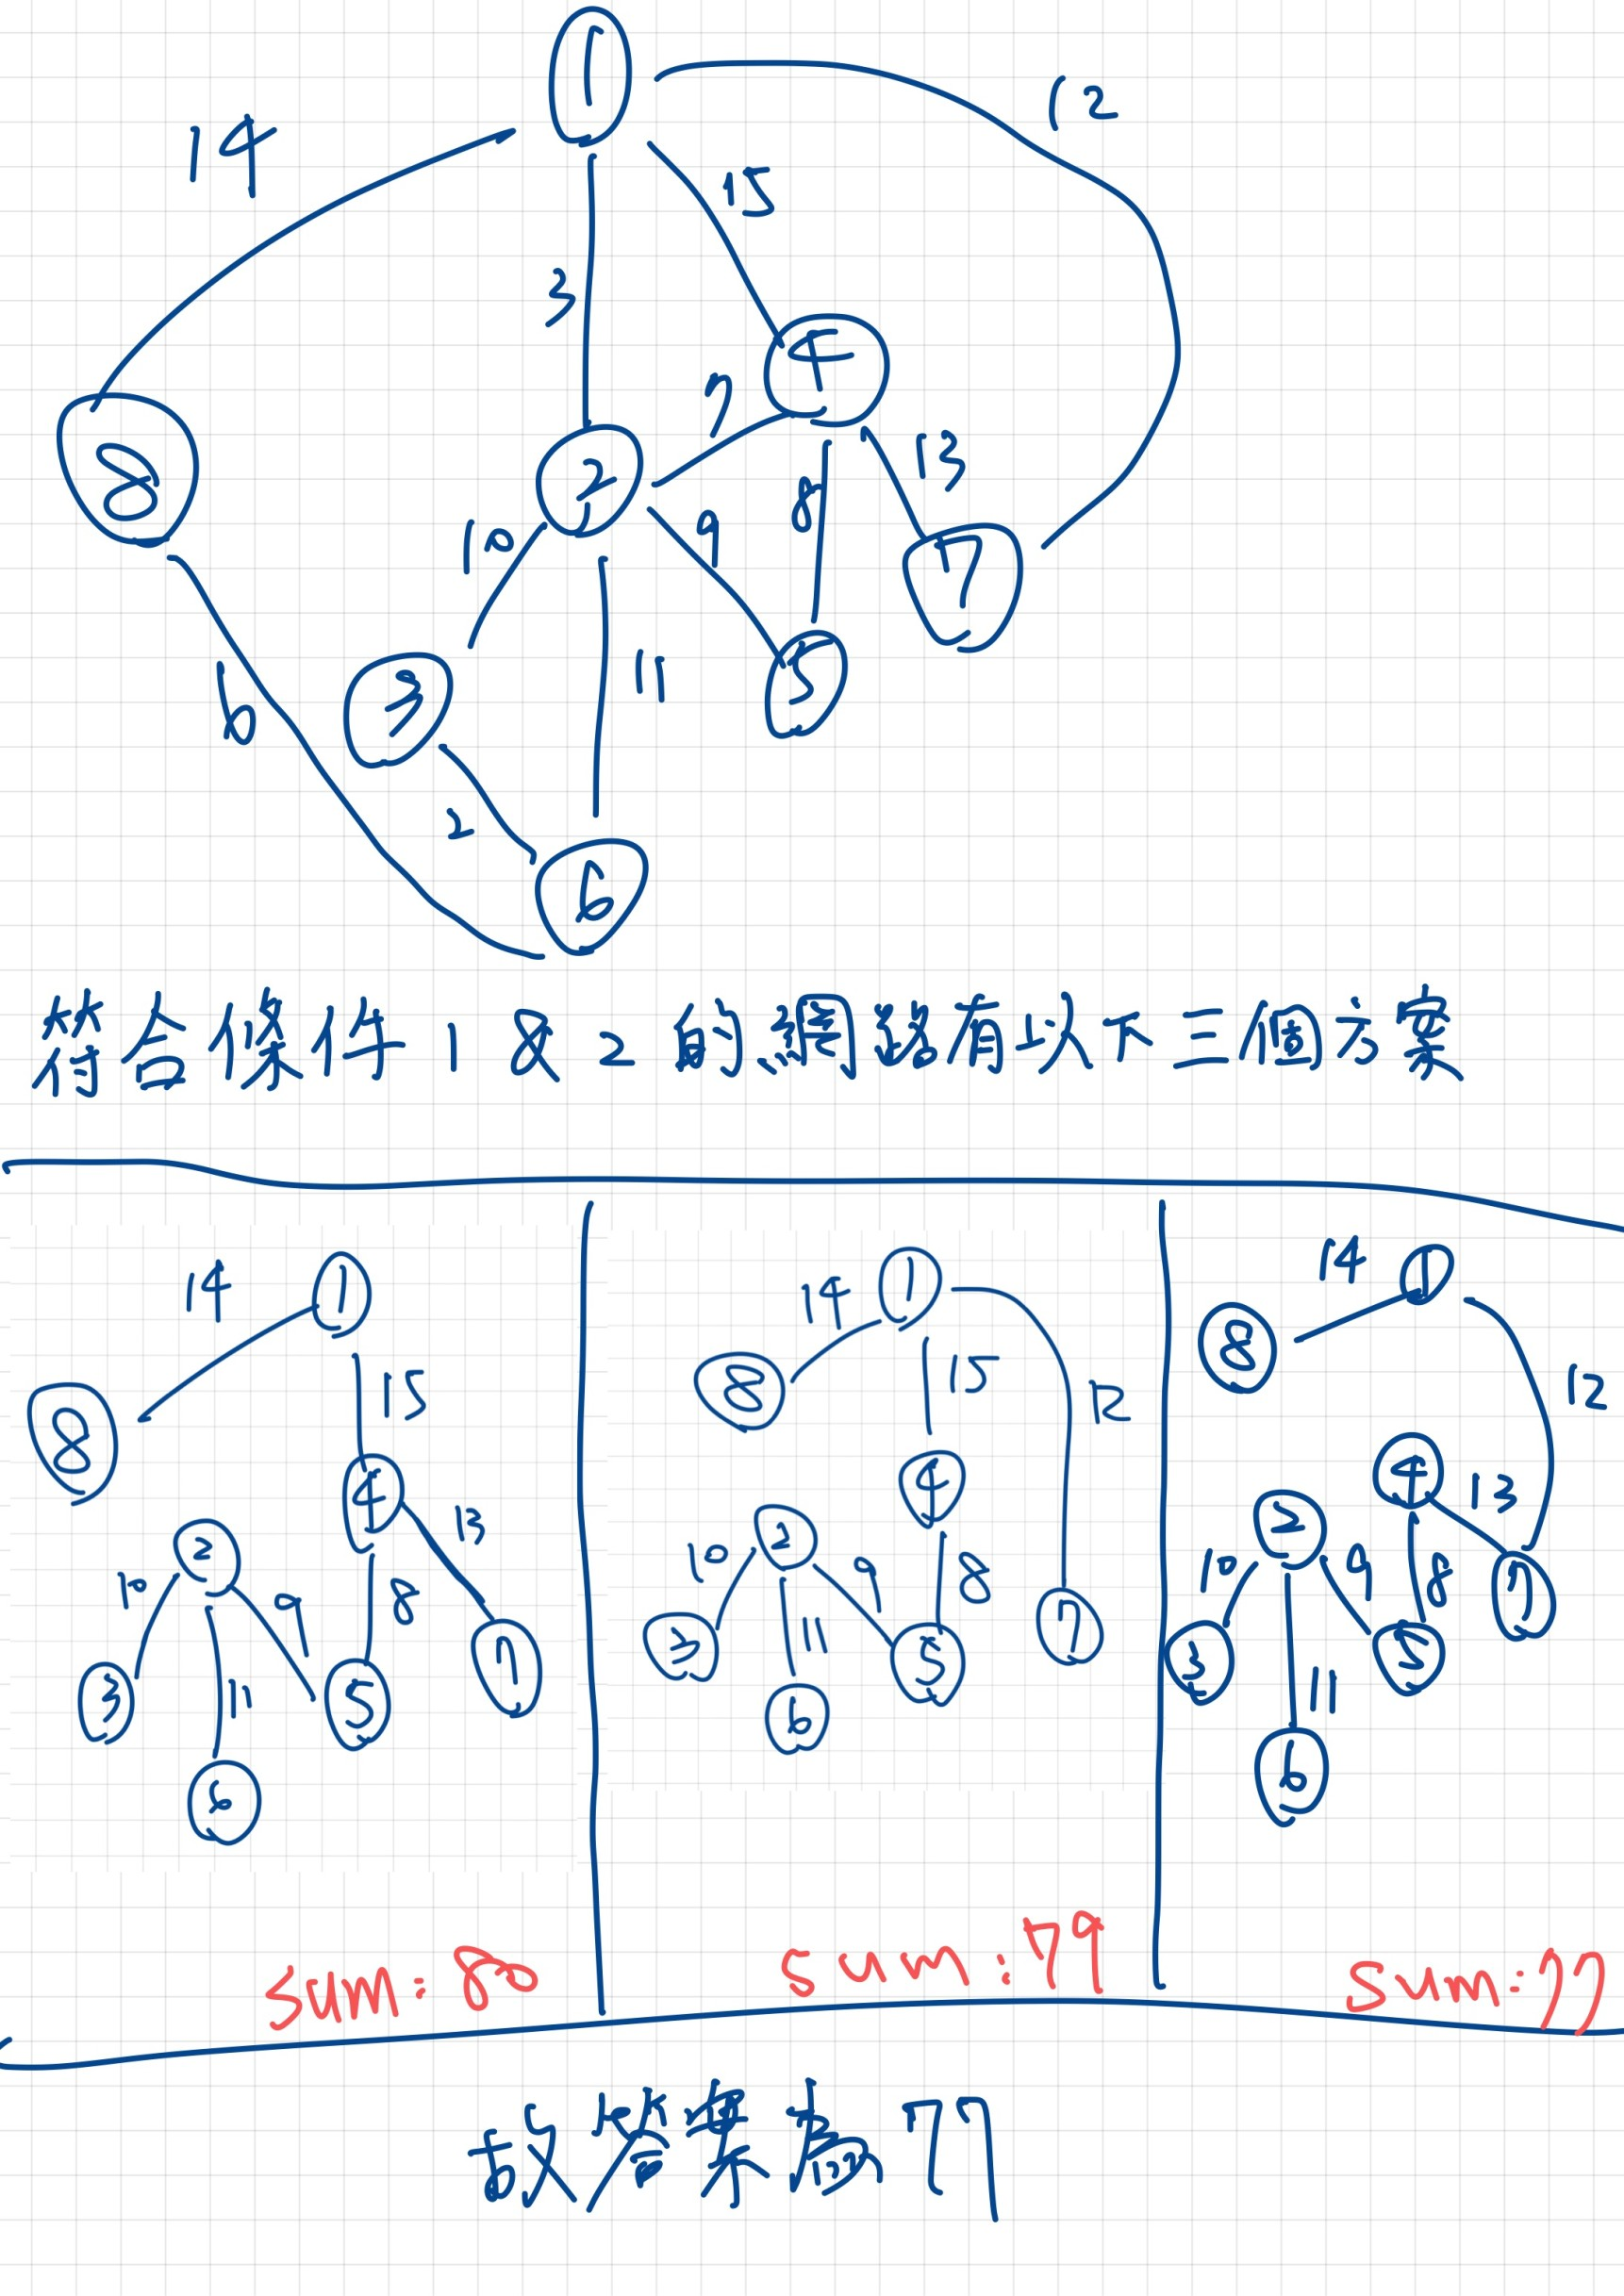 1
12
14
15
3
4
7
13
8
2
10
9
8
7
11
3
5
6
2
6
符合條件1&2的圖號有以下三個方案
14
1
15
8
4
13
2
10
9
8
7
3
11
5
6
sum:80
14
1
15
12
8
4
2
10
9
8
3
11
5
7
6
sum:79
14
1
8
12
4
13
2
10
9
8
7
3
5
11
6
sum:77
故答案為77